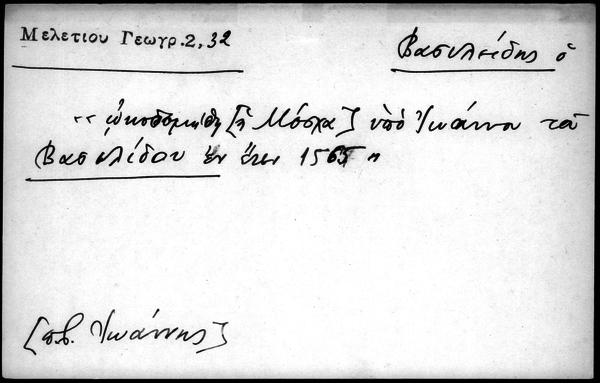 Μελετίου Γεωγρ. 2, 32
Βασιλείδης ὁ
«ᾠκοδομήθη [ἡ Μόσχα] ὑπὸ Ἰωάννου τοῦ
Βασιλίδου ἐν ἔτει 1565»
[πβ. Ἰωάννης]